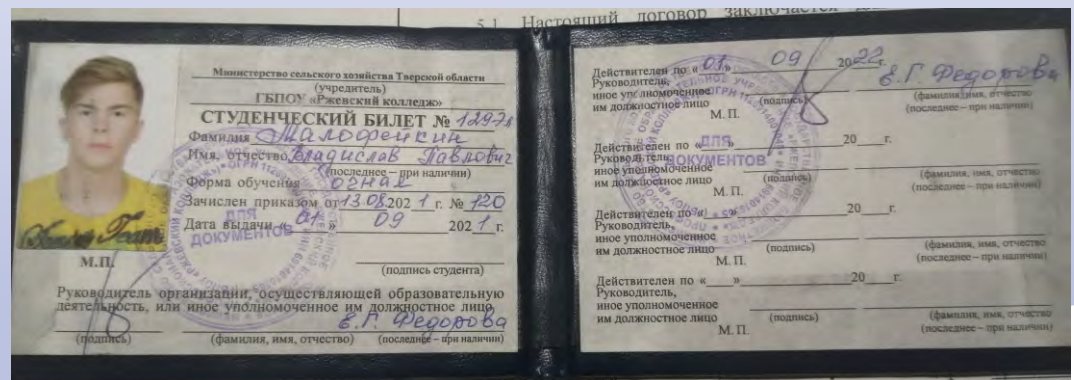 5.1. Настоящий договор заключается
Министерство сельского хозяйства Тверской области
(учредитель)
ГБПОУ «Ржевский колледж»
СТУДЕНЧЕСКИЙ БИЛЕТ №
Фамилия Малофейкин
Имя, отчество Владислав Павлович
(последнее – при наличии)
Форма обучения очная
Зачислен приказом от 13.08 2021 г. № 120
Дата выдачи « 01 » 09 2021 г.
ДЛЯ
ДОКУМЕНТОВ
М.П.
(подпись студента)
Руководитель организации, осуществляющей образовательную
деятельность, или иное уполномоченное им должностное лицо
Е.Г. Федорова
(подпись) (фамилия, имя, отчество) (последнее – при наличии)
Действителен по « 01 » 09 2022 г.
Руководитель,
иное уполномоченное
им должностное лицо
Е.Г. Федорова
(подпись) (фамилия, имя, отчество
(последнее – при наличии)
М. П.
Действителен по « » 20 г.
Руководитель,
иное уполномоченное
им должностное лицо
ДЛЯ
ДОКУМЕНТОВ
(подпись) (фамилия, имя, отчество
(последнее – при наличии)
М. П.
Действителен по « » 20 г.
Руководитель,
иное уполномоченное
им должностное лицо
(подпись) (фамилия, имя, отчество
(последнее – при наличии)
М. П.
Действителен по « » 20 г.
Руководитель,
иное уполномоченное
им должностное лицо
(подпись) (фамилия, имя, отчество
(последнее – при наличии)
М. П.